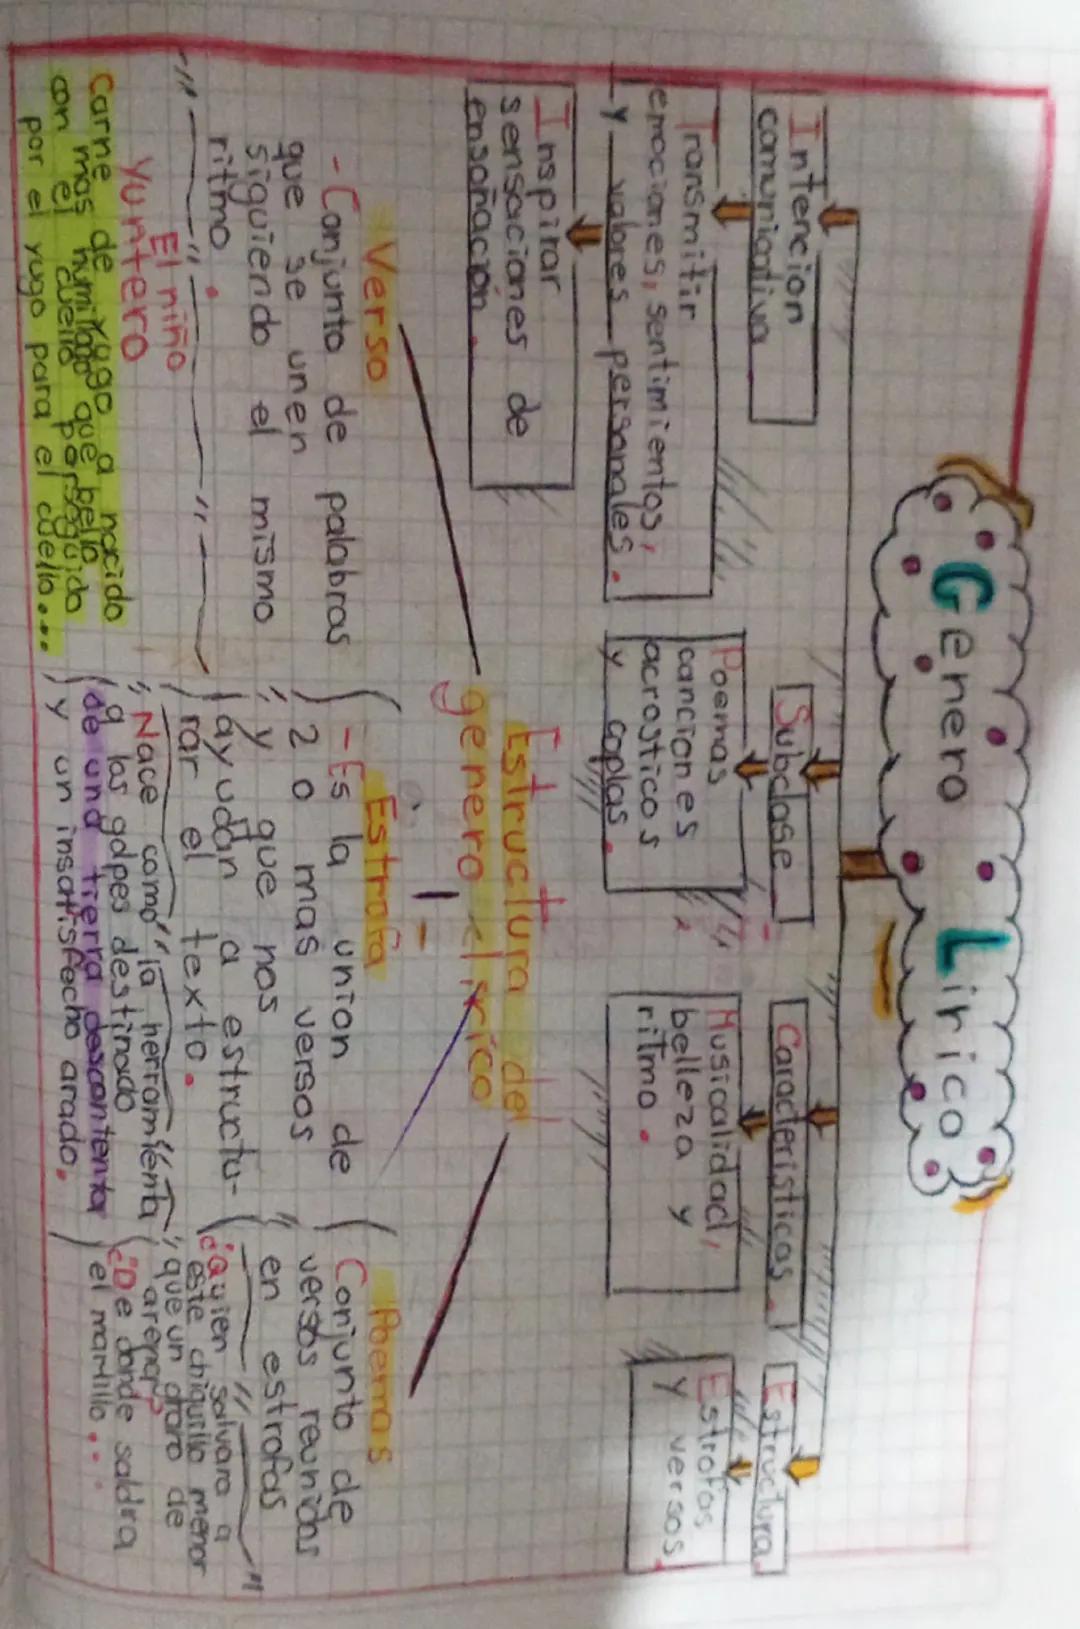 Genero Lirico
Intencion
comunicativa
Transmitir
emociones, sentimientos,
y valores personales.
Inspirar
sensaciones de
ensoñacion.
Subclase
Poemas
canciones
acrosticos
y coplas.
Caracteristicas.
Musicalidad,
belleza y
ritmo.
Estructura
Estrofas
y versos.
Estructura del
genero lirico
Verso
- Conjunto de palabras
que se unen
siguiendo el mismo
ritmo.
El niño
Yuntero
Carne de yugo a nacido
mas humillado que bello
con el cuello perseguido
por el yugo para el cuello...
Estrofa
- Es la union de
2 o mas versos
y que nos
ayudan a estructu-
rar el texto.
Nace como la herramienta
a los golpes destinado
de una tierra descontenta
y un insatisfecho arado.
Poemas
Conjunto de
versos reunidos
en estrofas
¿Quien salvara a
este chiquillo menor
que un grano de
arena?
¿De donde saldra
el martillo...